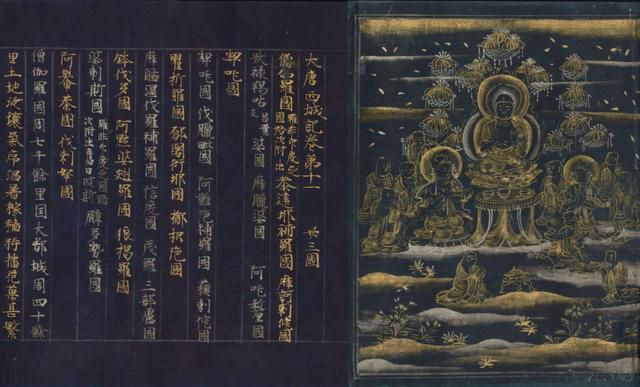 大唐西域記卷第十一 廿三國
僧伽羅國 雖非印度之國路次附出 荼建那補羅國 摩訶剌侘國
跋祿羯呫昌葉反婆國 摩臘婆國 阿吒釐國
契吒國
契吒國 伐臘毗國 阿難陀補羅國 蘇剌侘國
瞿折羅國 鄔闍衍那國 擲枳陀國
摩醯濕伐羅補羅國 信度國 茂羅三部盧國
鉢伐多國 阿點婆翅羅國 狼揭羅國
波剌斯國 雖非印度之國路次附出舊曰波斯 臂多勢羅國
阿軬荼國 伐剌拏國
僧伽羅國周七千餘里国大都城周四十餘
里土地沃壤氣序温暑稼穡時播花菓具繁